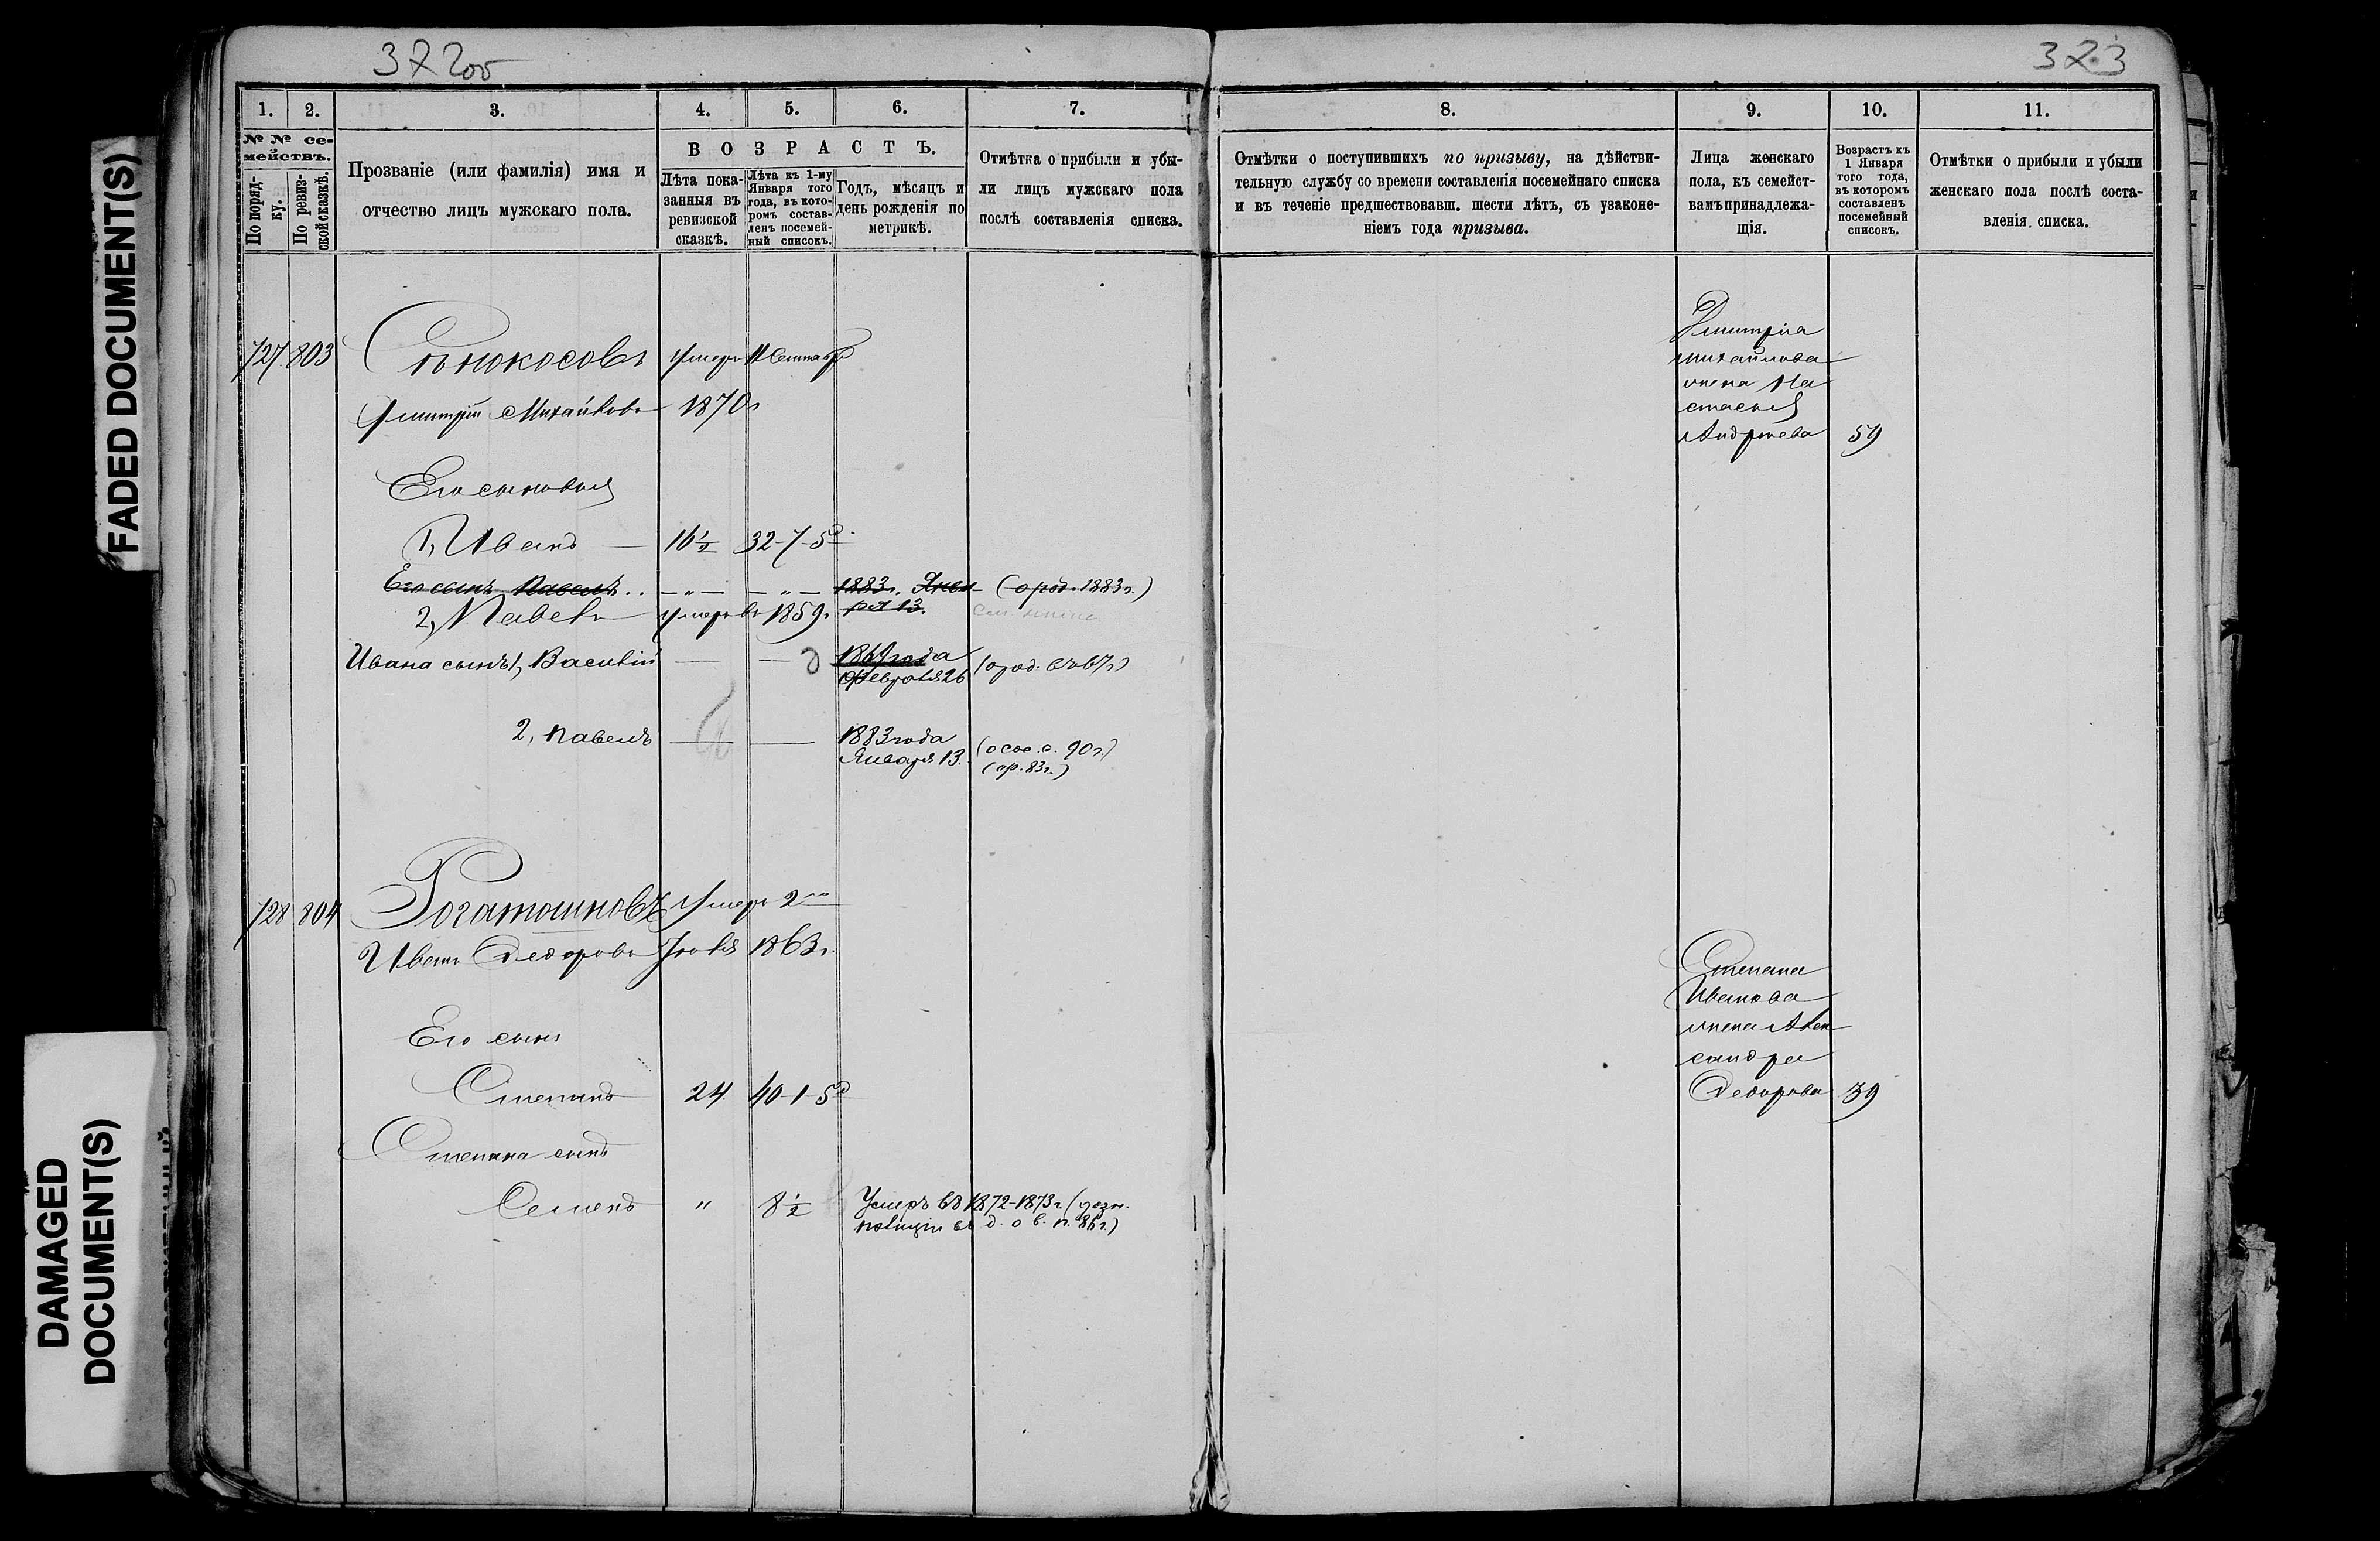 372об
323
FADED DOCUMENT(S)
DAMAGED
DOCUMENT(S)
1. 2. 3. 4. 5. 6. 7.
№ № се-
мействъ.
По поряд-
ку.
По ревиз-
ской сказкѣ.
Прозваніе (или фамилія) имя и
отчество лицъ мужскаго пола.
ВОЗРАСТЪ.
Лѣта пока-
занныя въ
ревизской
сказкѣ.
Лѣта къ 1-му
Января того
года, въ кото-
ромъ состав-
ленъ посемей-
ный списокъ.
Годъ, мѣсяцъ и
день рожденія по
метрикѣ.
Отмѣтка о прибыли и убы-
ли лицъ мужскаго пола
послѣ составленія списка.
727. 803 Сѣнокосовъ умеръ 11 Сентяб
Дмитрій Михайловъ 1870г
Его сыновья
1, Иванъ — 16½ 32-7-5д
Его сынъ Павелъ .. — „ — — „ — 1883г. Янва- (о род. 1883г.)
ря 13.
2, Павелъ умеръ въ 1859г
Ивана сынъ 1, Василій — — 1867 года (о род. въ 67г)
Февраля 26
2, Павелъ — — 1883 года
Января 13.
(о сос. с. 90г.)
(ор. 83г.)
728 804 Рогатошновъ Умеръ 2го
Иванъ Федоровъ Іюля 1863г.
Его сынъ
Степанъ 24 40-1-5д
Степана сынъ
Семенъ „ 8½ Умеръ въ 1872-1873г (дозн.
полиціи въ д. о в. п. 86г.)
8. 9. 10. 11.
Отмѣтки о поступившихъ по призыву, на дѣйстви-
тельную службу со времени составленія посемейнаго списка
и въ теченіе предшествовавш. шести лѣтъ, съ узаконе-
ніемъ года призыва.
Лица женскаго
пола, къ семейст-
вамъ принадлежа-
щія.
Возрастъ къ
1 Января
того года,
въ которомъ
составленъ
посемейный
списокъ.
Отмѣтки о прибыли и убыли
женскаго пола послѣ соста-
вленія списка.
Дмитрія
Михайлова
жена На
стасья
Андреева 59
Степана
Иванова
жена Алек
сандра
Федорова 39